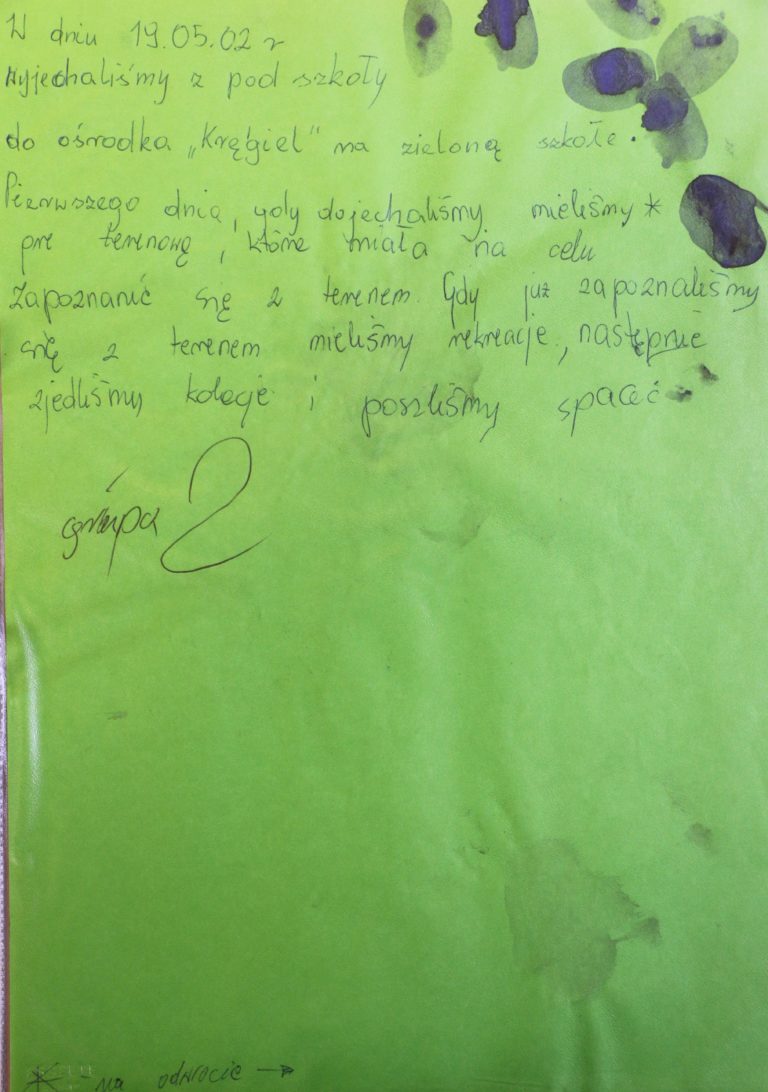 W dniu 19.05.02 r
wyjechaliśmy z pod szkoły
do ośrodka „Kręgiel" na zieloną szkołe.
Pierwszego dnia, gdy dojechaliśmy mieliśmy *
gre terenową, które miała na celu
Zapoznanić się z terenem. Gdy już zapoznaliśmy
się z terenem mieliśmy rekreacje, następnie
zjedliśmy kolacje i poszliśmy spacć
grupa 2
* - na odwrocie →